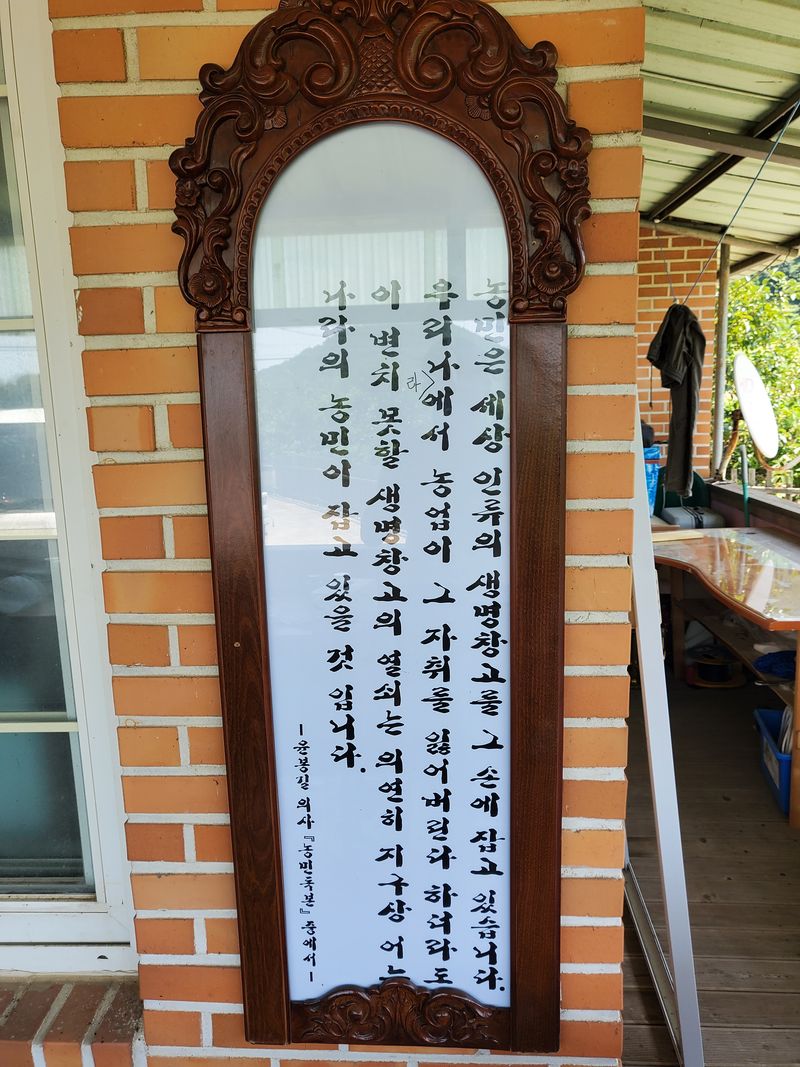 농민은 세상 인류의 생명창고를 그 손에 잡고 있습니다.
우리나에서 농업이 그 자취를 잃어버린다 하더라도
라
이 변치 못할 생명창고의 열쇠는 의연히 지구상 어느
나라의 농민이 잡고 있을 것 입니다.
-윤봉길 의사 『농민독본』 중에서-